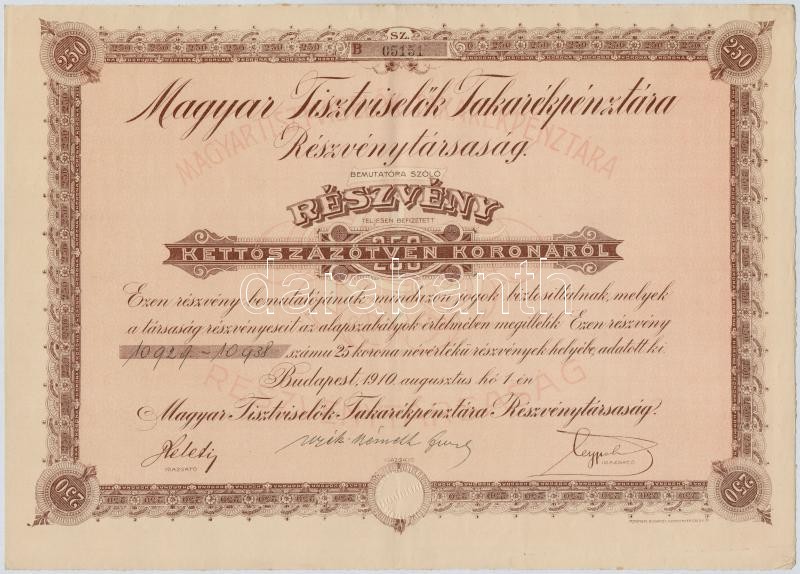 SZ.
B 05151
250 250
Magyar Tisztviselők Takarékpénztára
MAGYAR TISZTVISELŐK TAKARÉKPÉNZTÁRA
Részvénytársaság.
BEMUTATÓRA SZÓLÓ
RÉSZVÉNY
TELJESEN BEFIZETETT
250
KETTŐSZÁZÖTVEN KORONÁRÓL
darabanth
Ezen részvény bemutatójának mindazon jogok biztosíttatnak, melyek
a társaság részvényeseit az alapszabályok értelmében megilletik. Ezen részvény
10929-10938 számú 25 korona névértékű részvények helyébe adatott ki.
RÉSZVÉNYTÁRSASÁG
Budapest, 1910. augusztus hó 1-én
Magyar Tisztviselők Takarékpénztára Részvénytársaság.
IGAZGATÓ IGAZGATÓ IGAZGATÓ
250 250